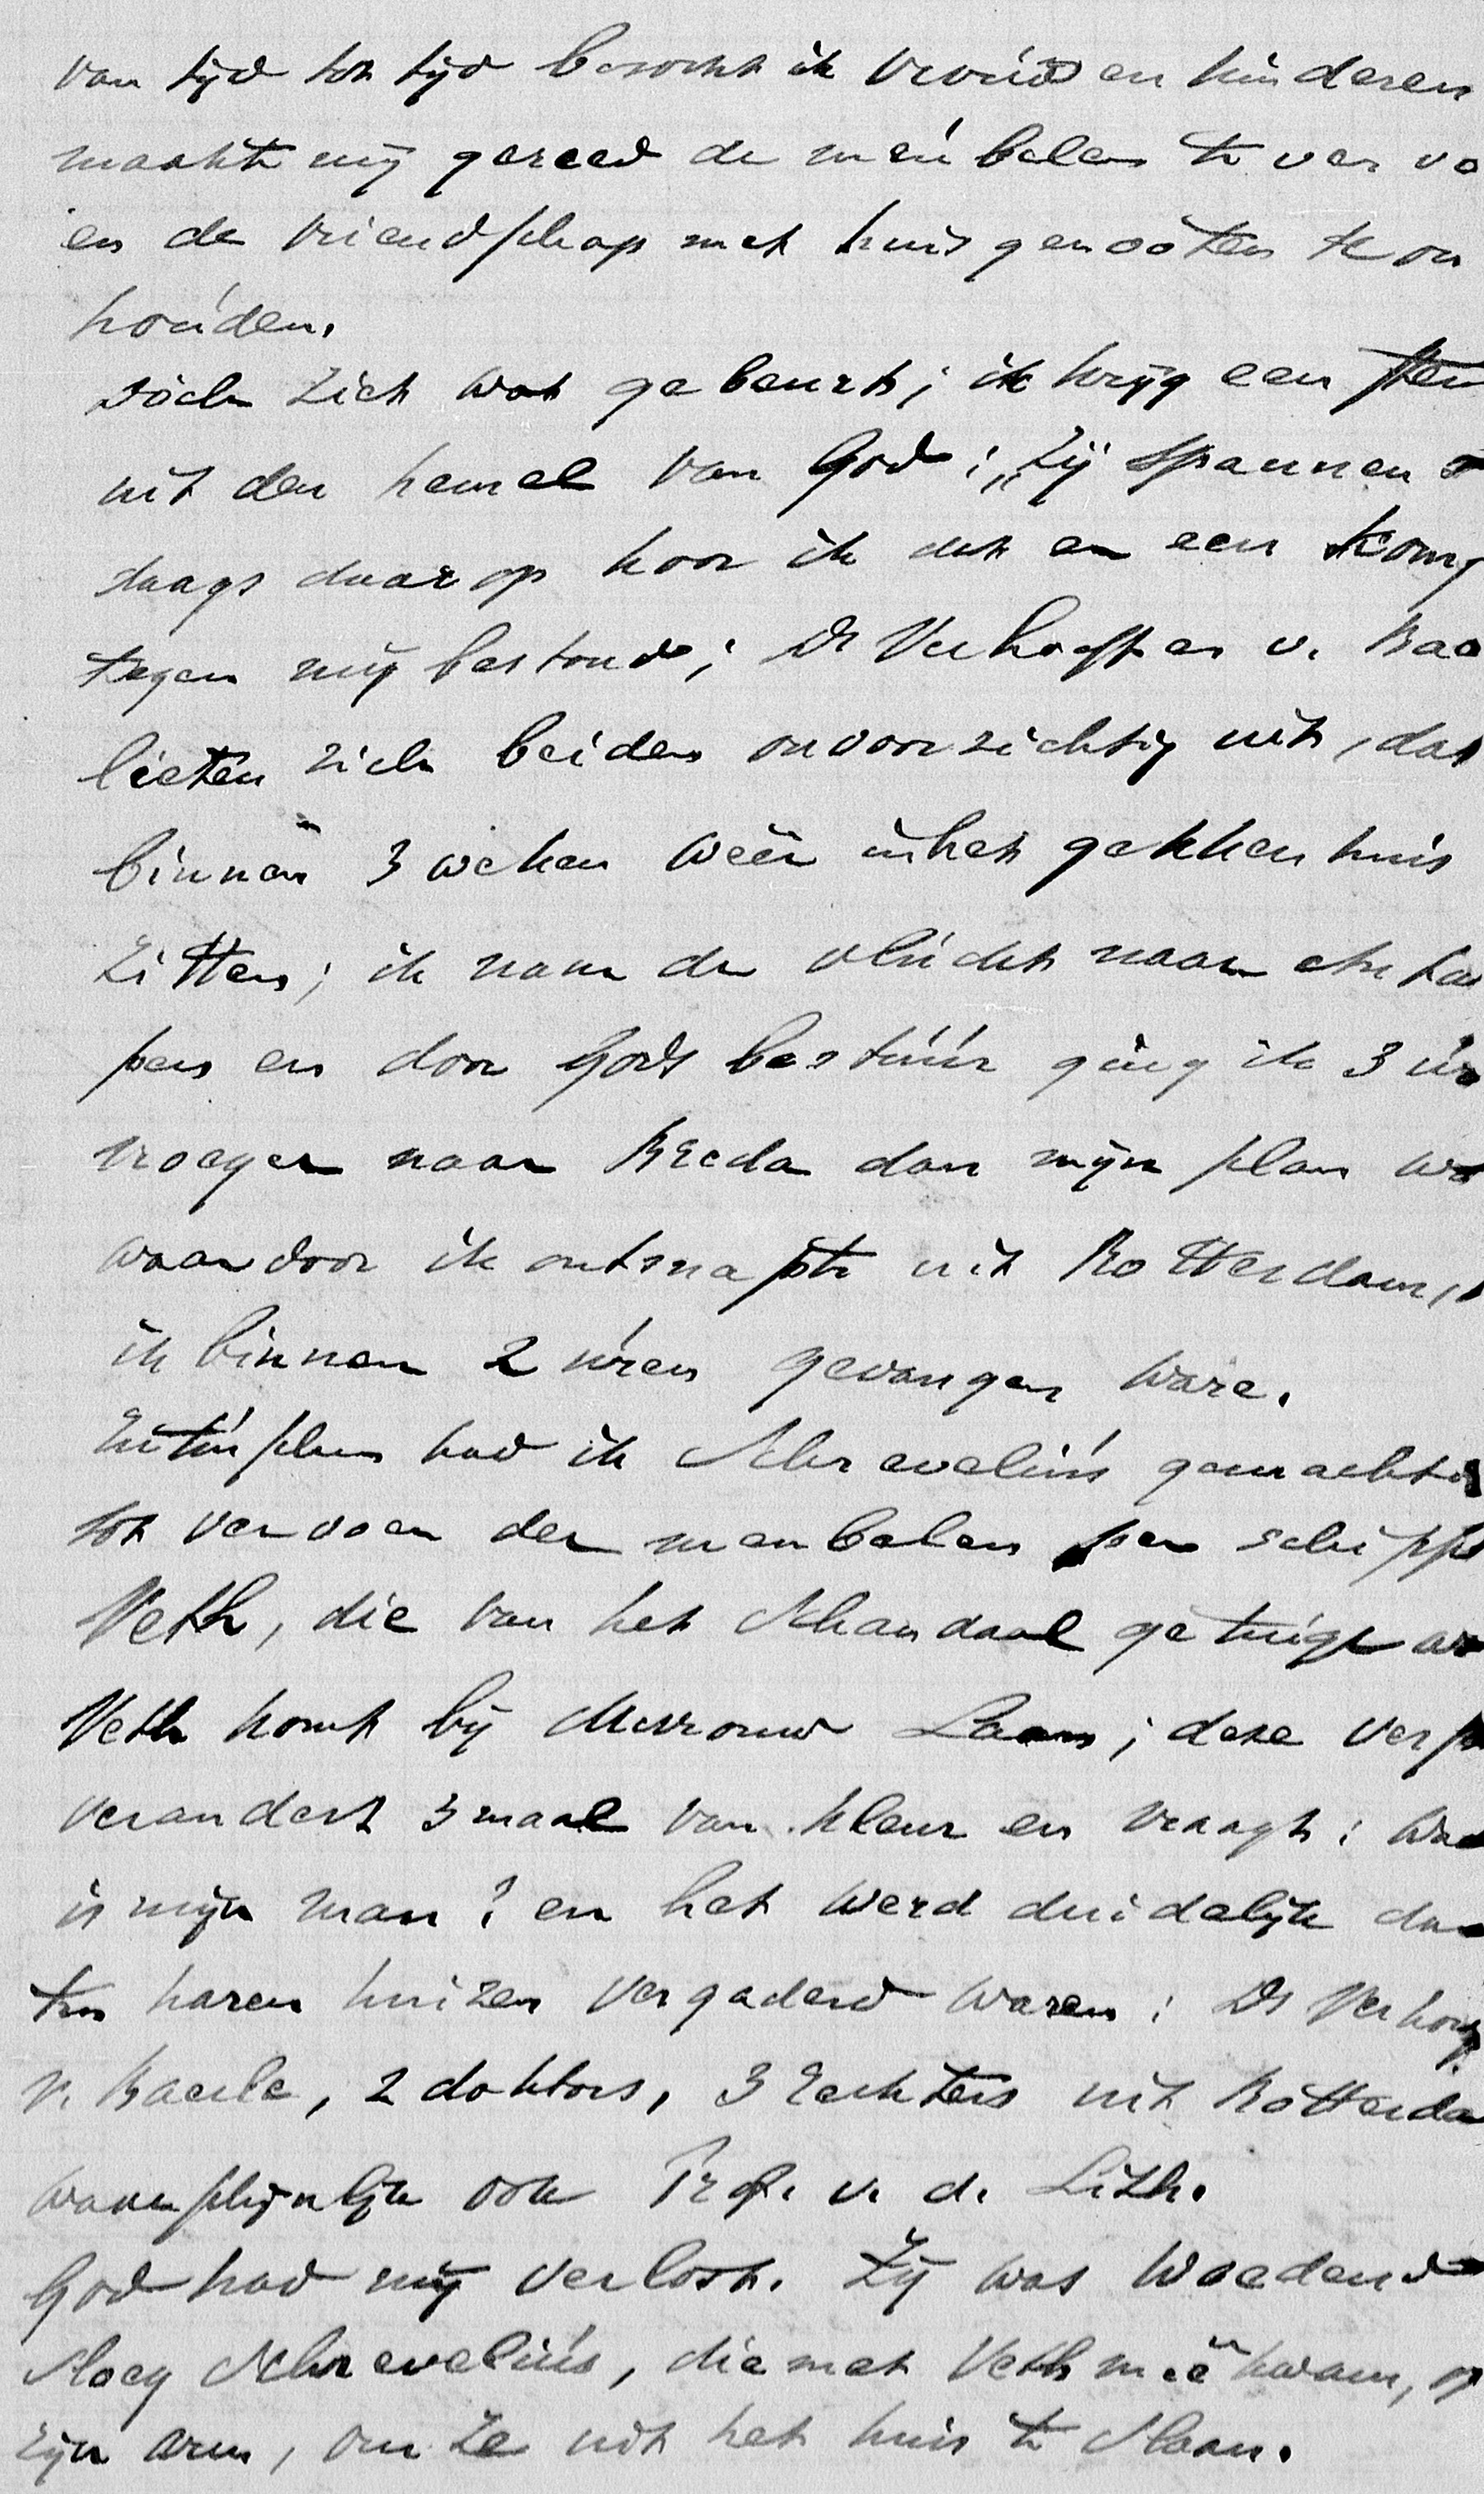 van tijd tot tijd bezocht ik vrouw en kinderen
maakte mij gereed de meubelen te ver vo
en de vriendschap met huisgenooten te on
houden.
Doch ziet wat gebeurt; ik krijg een stem
uit den hemel van God: „Zij spannen
daags daarop hoor ik dat er een komp
tegen mij bestond; Ds Verhoeff en v. Bae
lieten zich beiden onvoorzichtig uit, dat
binnen 3 weken weêr in het gekkenhuis
zitten; ik nam de vlucht naar
pen en door Gods bestuur ging ik 3 uur
vroeger naar Breda dan mijn plan wa
waardoor ik ontsnapte uit Rotterdam,
ik binnen 2 uren gevangen ware.
had ik Schrevelius gemachti
tot vervoer der meubelen per schipp
Veth, die van het schandaal getuige wa
Veth komt bij Mevrouw Laan; deze
verandert 3 maal van kleur en vraagt: waa
is mijn man? en het werd duidelijk da
ten haren huizen vergaderd waren: Ds Verhoe
v. Baerle, 2 doktors, 3 rechters uit Rotterda
waarschijnlijk ook Prof. v. d. Lith.
God had mij verlost. Zij was woedend
sloeg Schrevelius, die met Veth meê kwam, op
zijn arm, om ze uit het huis te slaan.